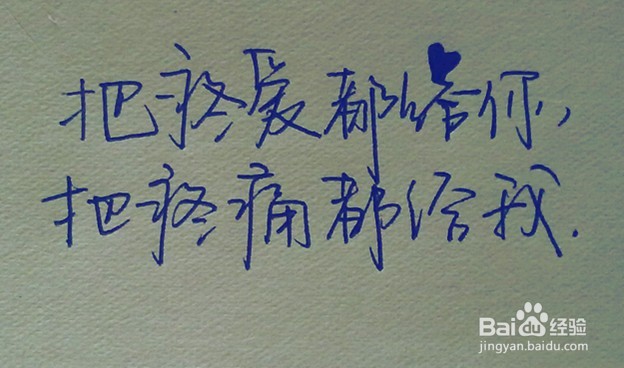 把疼爱都给你，
把疼痛都给我.
Baidu 经验
jingyan.baidu.com